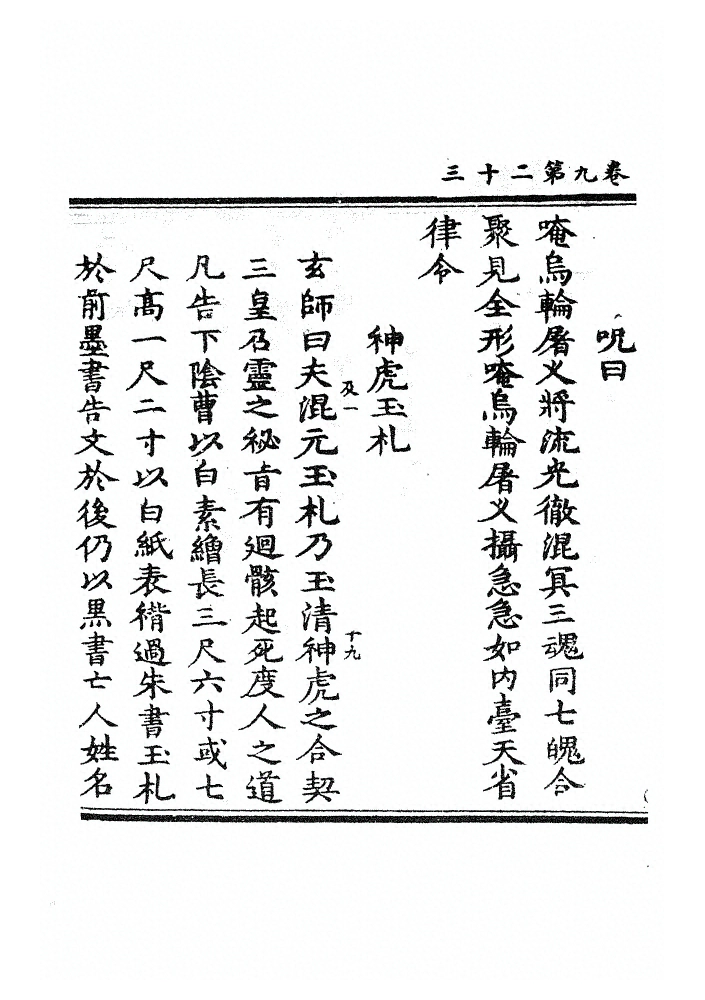 卷九第二十三
呪曰
唵烏輪屠义將流光徹混冥三魂同七魄合
聚見全形唵烏輪屠义攝急急如内臺天省
律令
神虎玉札
及一
十九
玄師曰夫混元玉札乃玉清神虎之合契
三皇召靈之祕旨有廻骸起死度人之道
凡告下陰曹以白素繒長三尺六寸或七
尺高一尺二寸以白紙表褙過朱書玉札
於前墨書告文於後仍以黑書亡人姓名